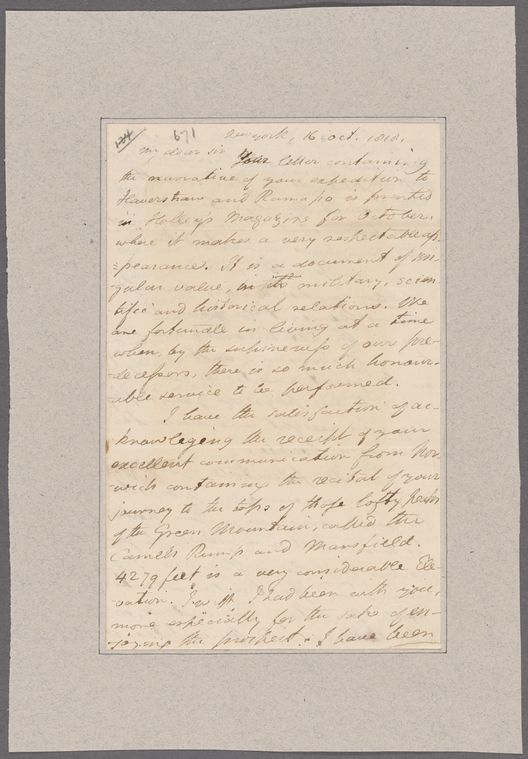 124
671
New york, 16 oct. 1818.
My dear sir Your letter containing
the narrative of your expedition to
Haverstraw and Ramapo is printed
in Holley's Magazine for October.
where it makes a very respectable ap-
=pearance. It is a document of sin-
gular value, in its military, scien-
tific and historical relations. We
are fortunate in living at a time
when, by the supineness of our pre-
decessors, there is so much honour-
able service to be performed.
I have the satisfaction of ac-
knowleging the receipt of your
excellent communication from Nor-
wich containing the recital of your
journey to the tops of those lofty peaks
of the Green Mountain, called the
Camels Rump and Mansfield.
4279 feet is a very considerable Ele-
vation. I wish I had been with you,
more especially for the sake of en-
joying the prospect. I have been